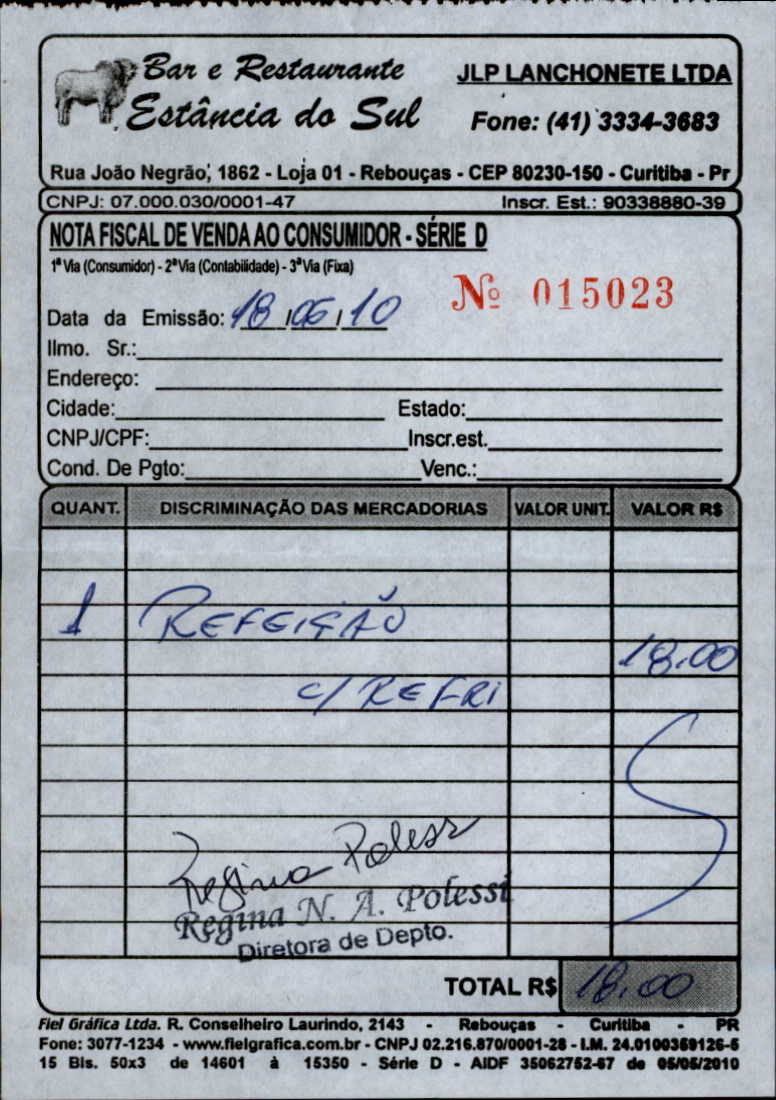 Bar e Restaurante
Estância do Sul
JLP LANCHONETE LTDA
Fone: (41) 3334-3683
Rua João Negrão, 1862 - Loja 01 - Rebouças - CEP 80230-150 - Curitiba - Pr
CNPJ: 07.000.030/0001-47 Inscr. Est.: 90338880-39
NOTA FISCAL DE VENDA AO CONSUMIDOR - SÉRIE D
1ª Via (Consumidor) - 2ª Via (Contabilidade) - 3ª Via (Fixa)
Nº 015023
Data da Emissão: 18/06/10
Ilmo. Sr.:
Endereço:
Cidade: Estado:
CNPJ/CPF: Inscr.est.
Cond. De Pgto: Venc.:
QUANT. DISCRIMINAÇÃO DAS MERCADORIAS VALOR UNIT. VALOR R$
1 REFEIÇÃO
18,00
c/ REFRI
Regina Polessi
Regina N. A. Polessi
Diretora de Depto.
TOTAL R$ 18,00
Fiel Gráfica Ltda. R. Conselheiro Laurindo, 2143 - Rebouças - Curitiba - PR
Fone: 3077-1234 - www.fielgrafica.com.br - CNPJ 02.216.870/0001-28 - I.M. 24.0100369126-5
15 Bls. 50x3 de 14601 à 15350 - Série D - AIDF 35062752-67 de 05/05/2010